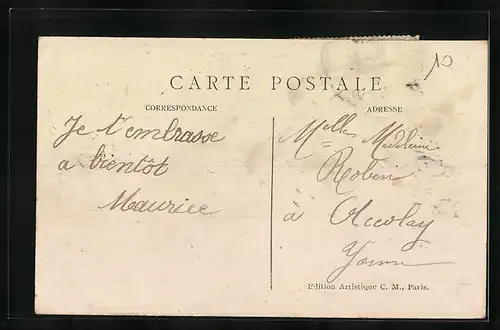 10
CARTE POSTALE
CORRESPONDANCE
ADRESSE
Je t'embrasse
a bientôt
Maurice
Melle Madeleine
Robin
à Accolay
Yonne
Edition Artistique C. M., Paris.